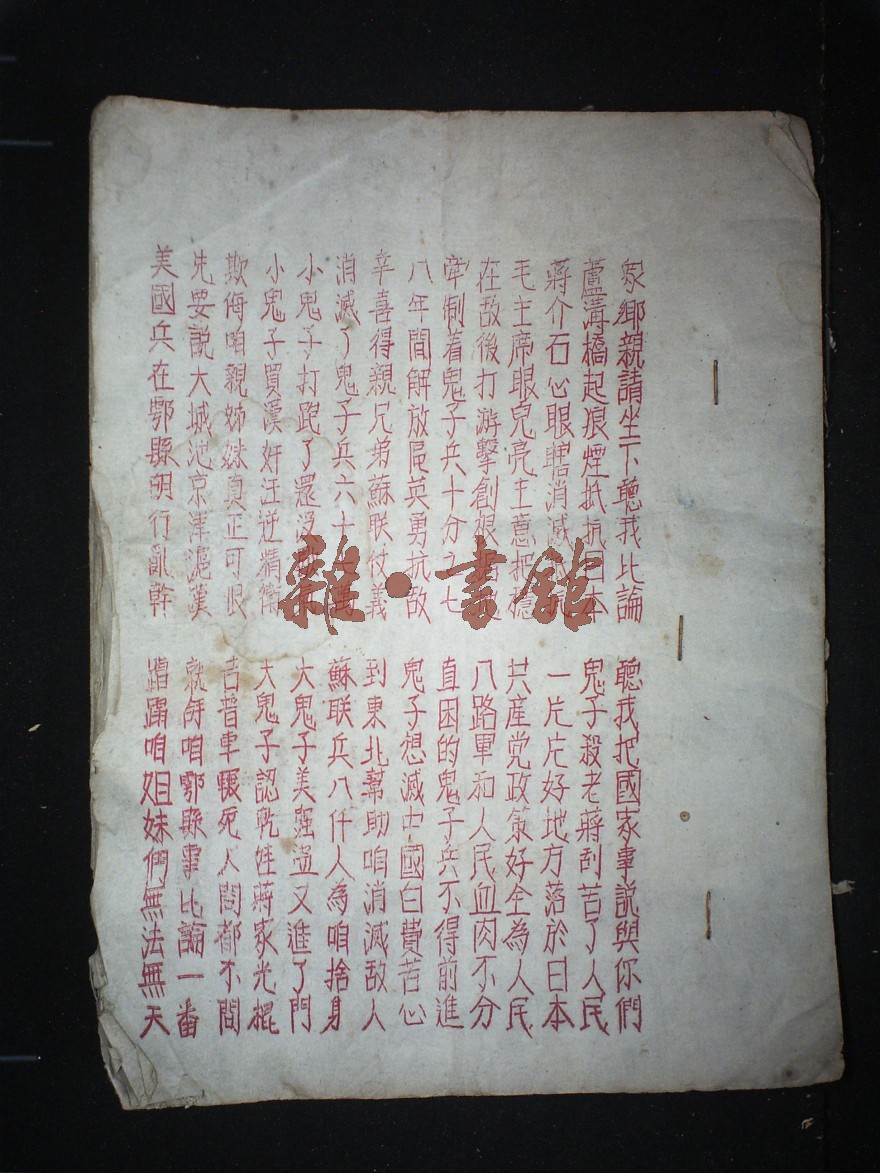 家鄉親請坐下聽我比論 聽我把國家事說與你們
蘆溝橋起痕煙抵抗日本 鬼子殺老蔣刮苦了人民
蔣介石心眼瞎消滅 一片片好地方落於日本
毛主席眼兒亮主意把穩 共產党政策好全為人民
在敵後打游擊創 八路軍和人民血肉不分
牽制着鬼子兵十分之七 直困的鬼子兵不得前進
八年間解放區英勇抗敵 鬼子想滅中國白費苦心
幸喜得親兄弟蘇联仗義 到東北幫助咱消滅敵人
消滅了鬼子兵六十萬 蘇联兵八仟人為咱捨身
小鬼子打跑了還沒 大鬼子美强盗又進了門
小鬼子買漢奸汪逆精衛 大鬼子認乾娃蔣家光棍
欺侮咱親姊妹真正可恨 吉普車輾死人問都不問
先要說大城池京津滬漢 就咱鄠縣事比論一番
美國兵在鄠縣胡行亂幹 蹧蹋咱姐妹們無法無天
雜·書館